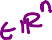 ∈ ℝⁿ